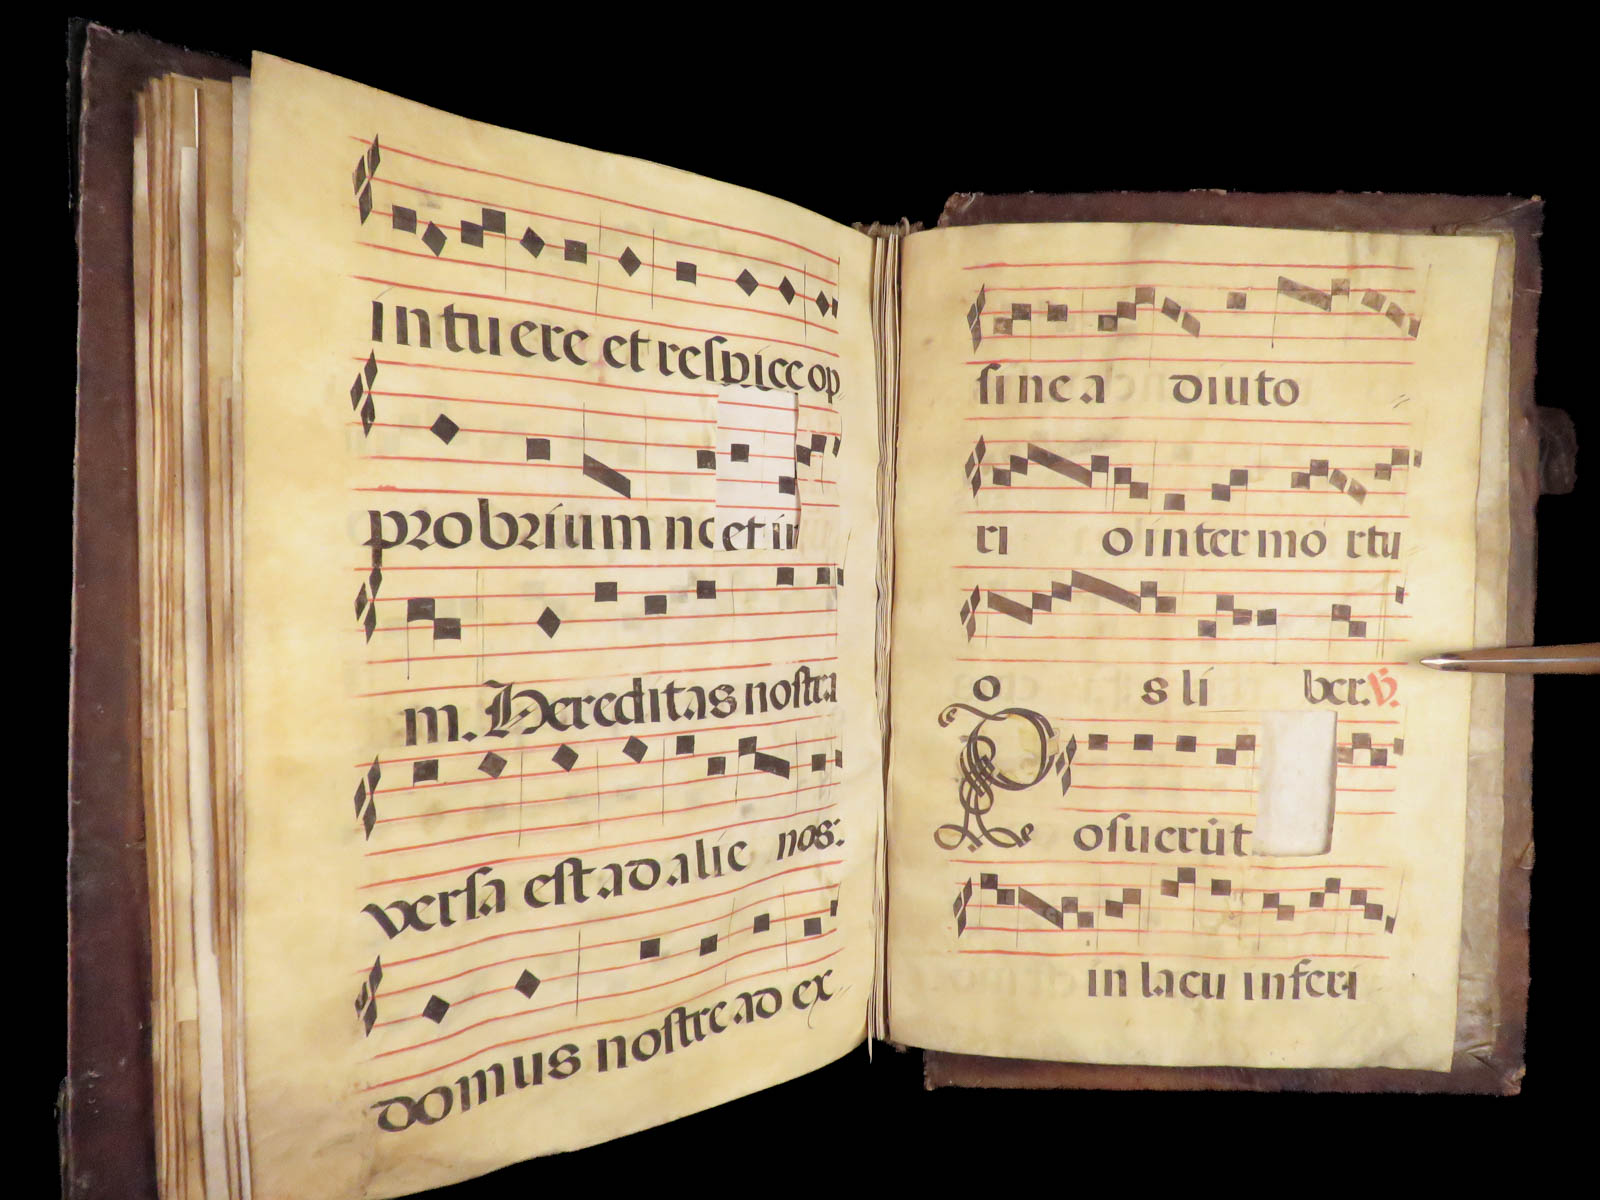 intuere et respice op
probrium no et in
m. Hereditas nostra
versa est ad alie nos:
domus nostre ad ex
sine adiuto
ri o inter mo rtu
o s li ber. ℣.
Posuerũt
in lacu inferi